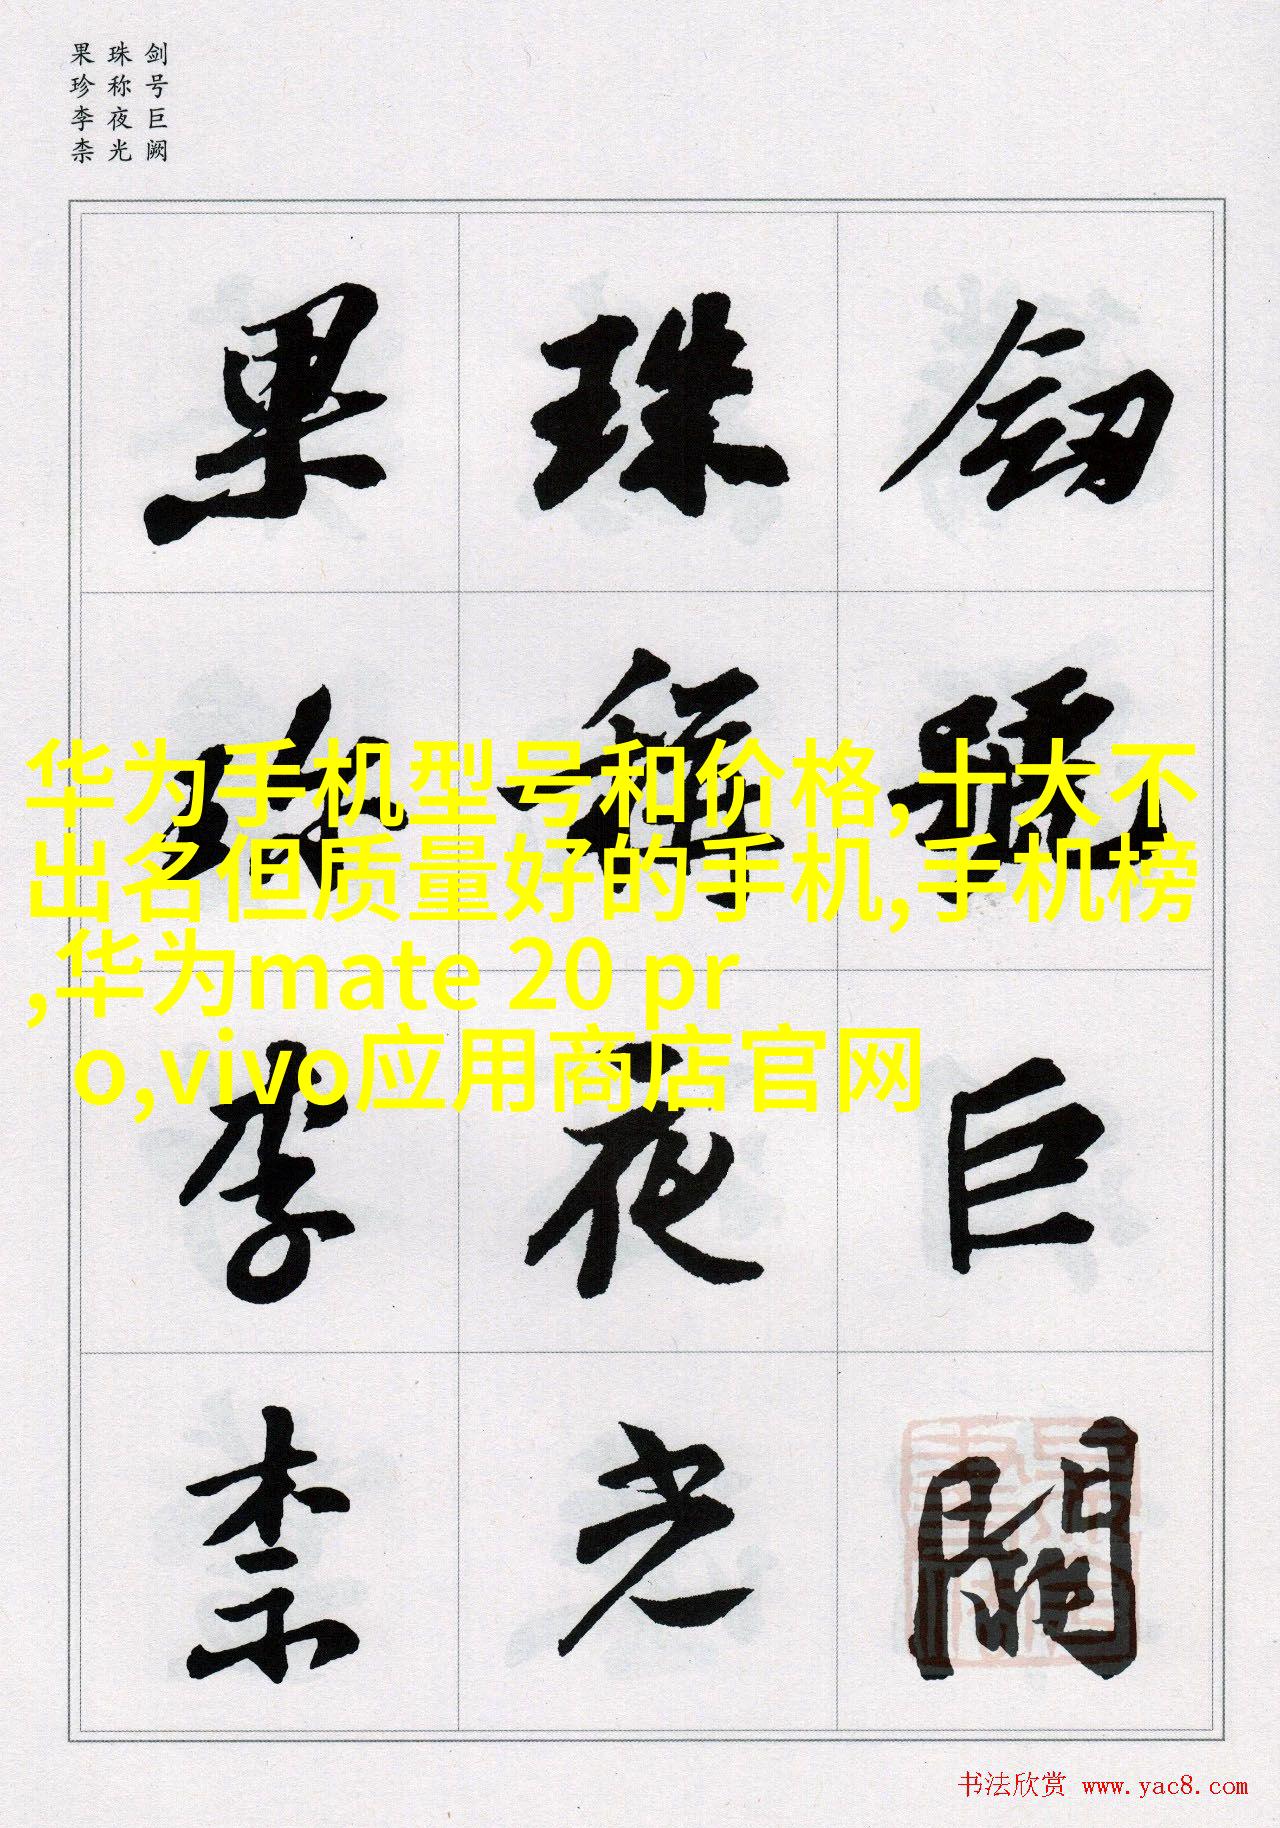 剑号巨阙
珠称夜光
果珍李柰
劍號巨闕
珠稱夜光
果珍李柰
华为手机型号和价格,十大不
出名但质量好的手机,手机榜
,华为mate 20 pr
o,vivo应用商店官网
书法欣赏 www.yac8.com